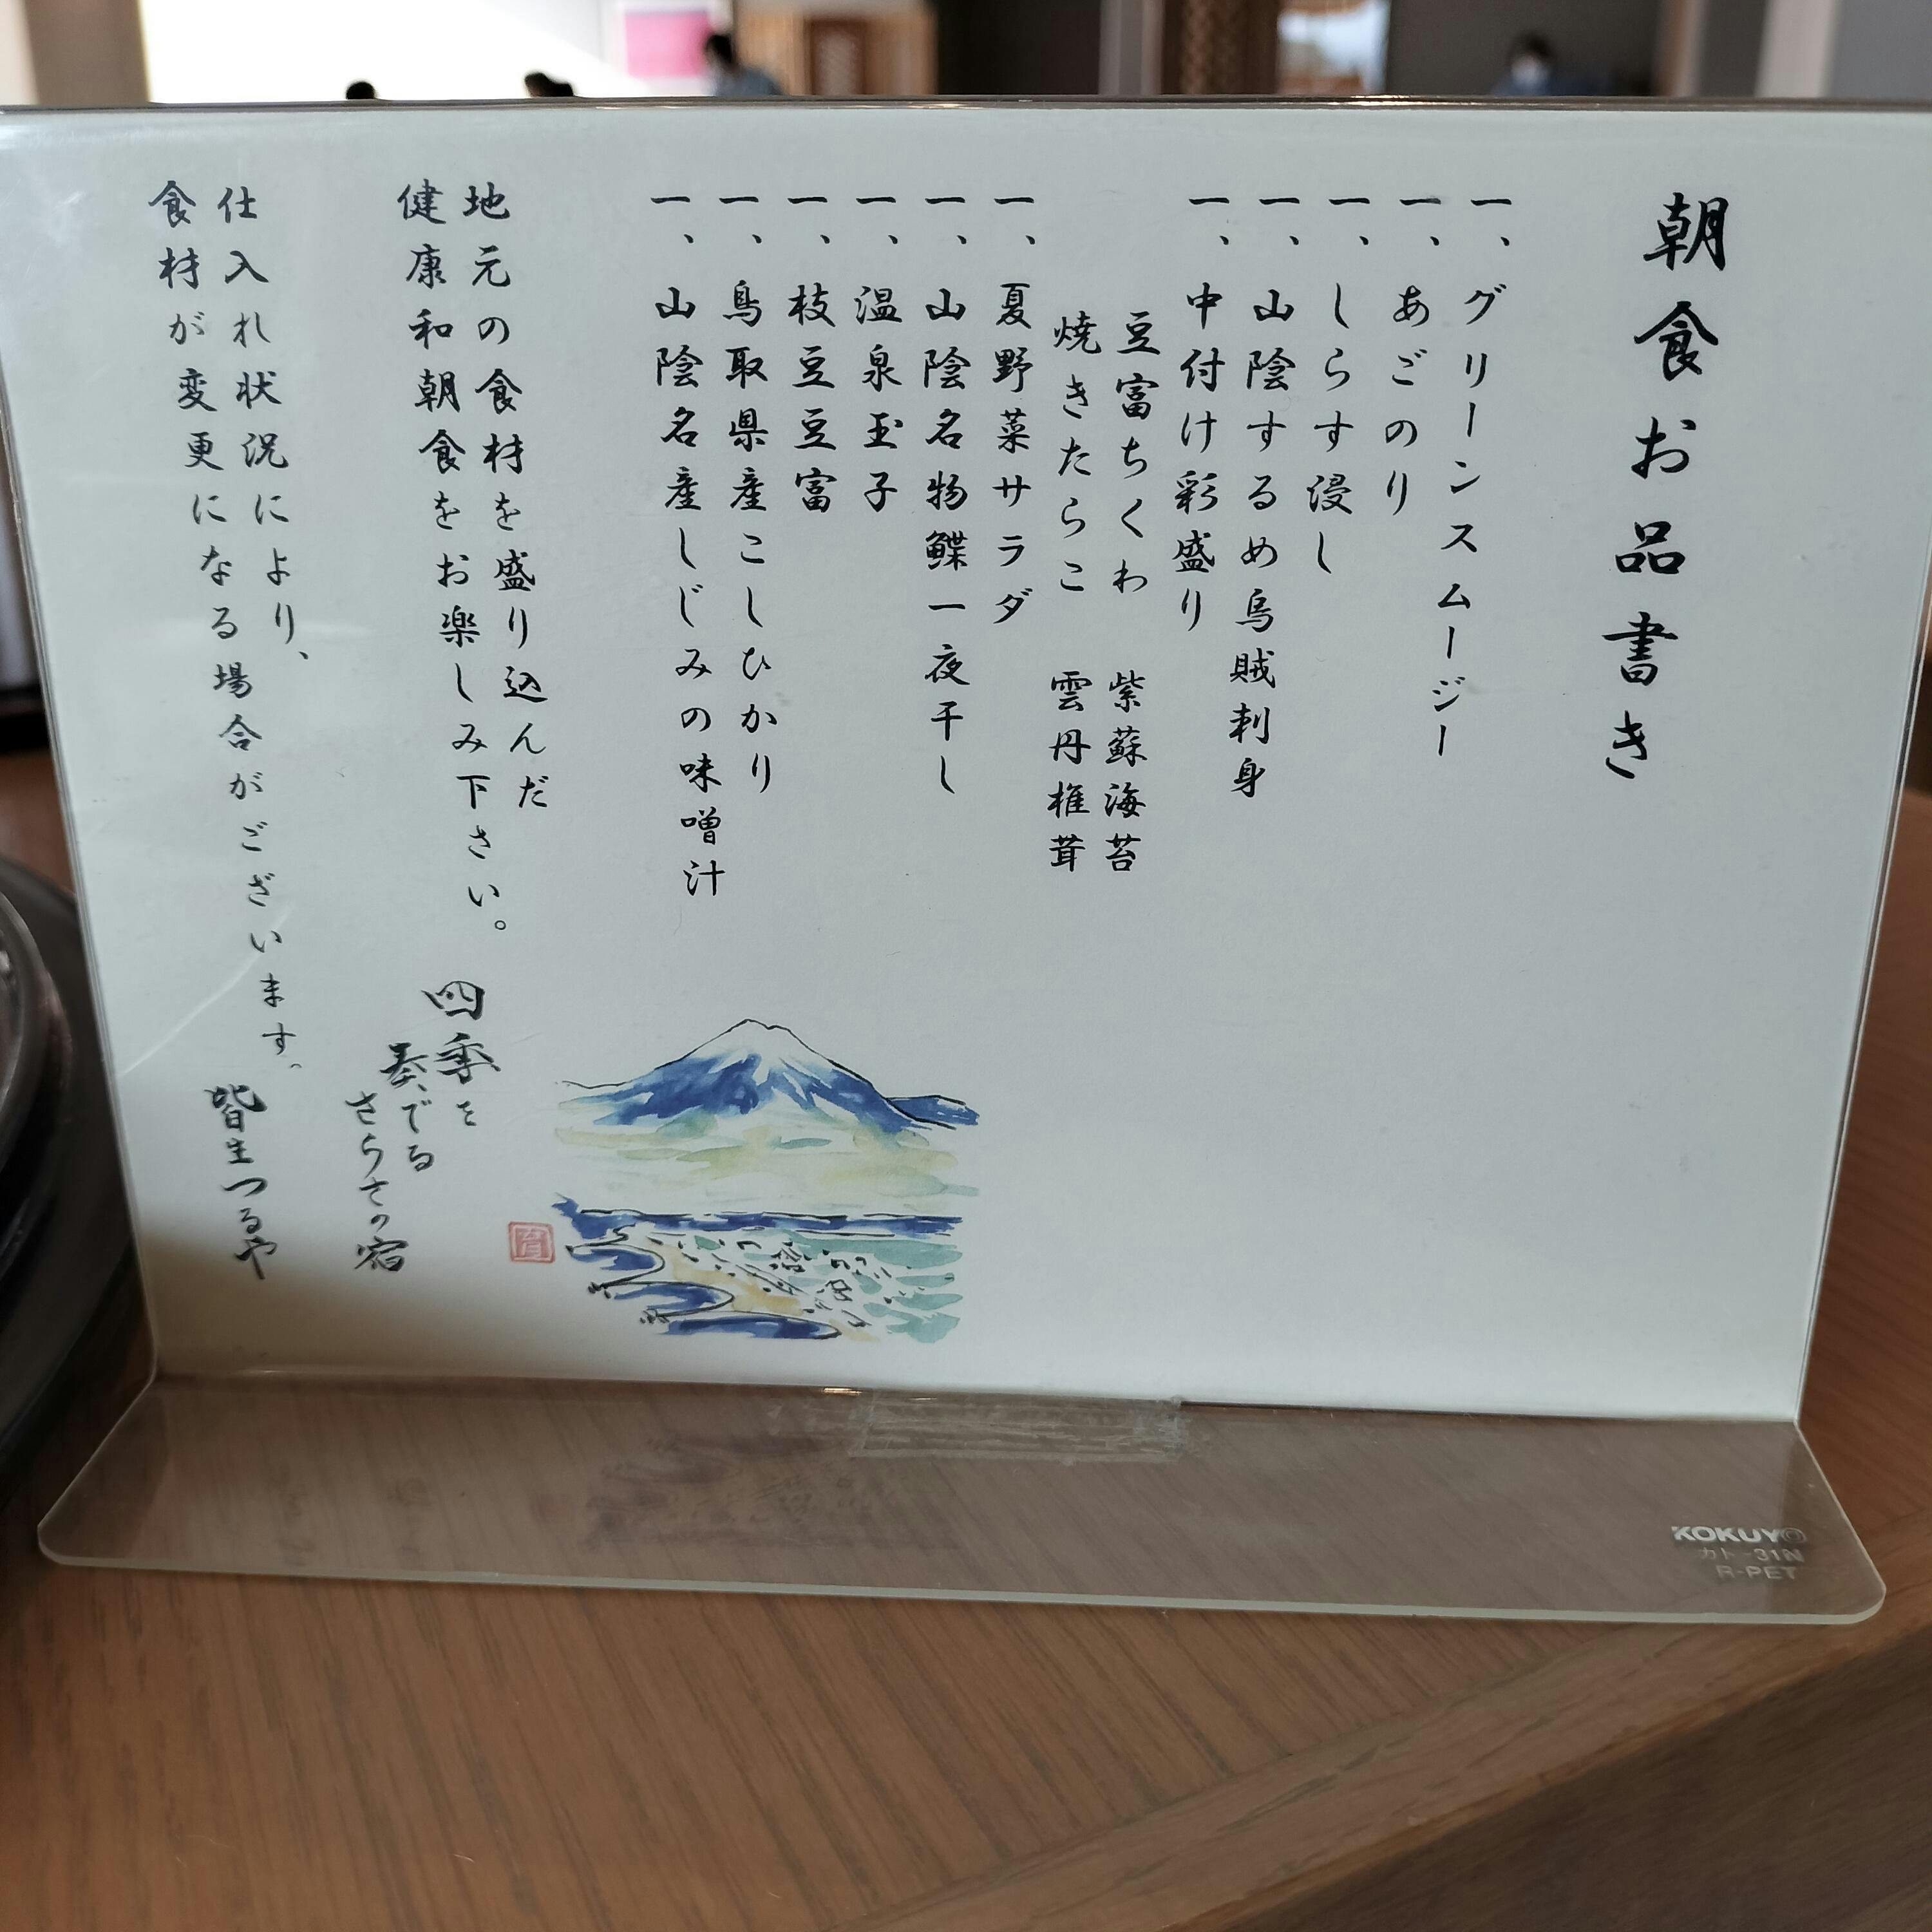 朝食お品書き
一、グリーンスムージー
一、あごのり
一、しらす浸し
一、山陰するめ烏賊刺身
一、中付け彩盛り
豆富ちくわ 紫蘇海苔
焼きたらこ 雲丹椎茸
一、夏野菜サラダ
一、山陰名物鰈一夜干し
一、温泉玉子
一、枝豆豆富
一、鳥取県産こしひかり
一、山陰名産しじみの味噌汁
地元の食材を盛り込んだ
健康和朝食をお楽しみ下さい。
仕入れ状況により、
食材が変更になる場合がございます。
四季を
奏でる
さらさの宿
皆生つるや
KOKUYO
カト-31N
R-PET